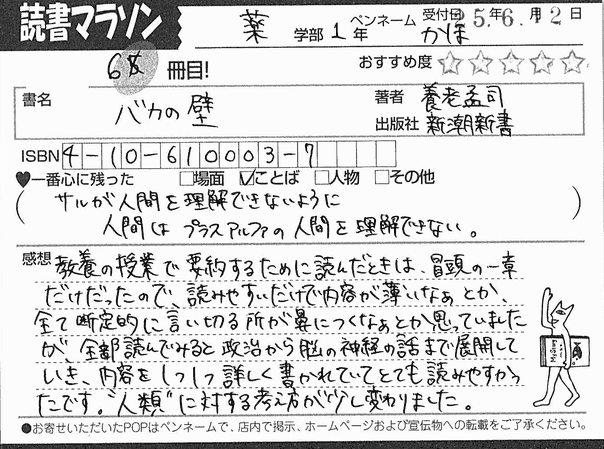 読書マラソン
薬 学部 1 年 ペンネーム かほ 受付日 5年6.月12日
冊目! おすすめ度 ☆☆☆☆☆
書名 バカの壁 著者 養老孟司
出版社 新潮新書
ISBN 4-10-610003-7
♥一番心に残った □場面 ☑ことば □人物 □その他
(サルが人間を理解できないように
人間はプラスアルファの人間を理解できない。)
感想 教養の授業で要約するために読んだときは、冒頭の一章
だけだったので、読みやすいだけで内容が薄いなぁとか、
全て断定的に言い切る所が鼻につくなぁとか思っていました
が、全部読んでみると政治から脳の神経の話まで展開して
いき、内容をしつつ詳しく書かれていてとても読みやすかっ
たです。"人類"に対する考え方が少し変わりました。
●お寄せいただいたPOPはペンネームで、店内で掲示、ホームページおよび宣伝物への転載をご了承ください。